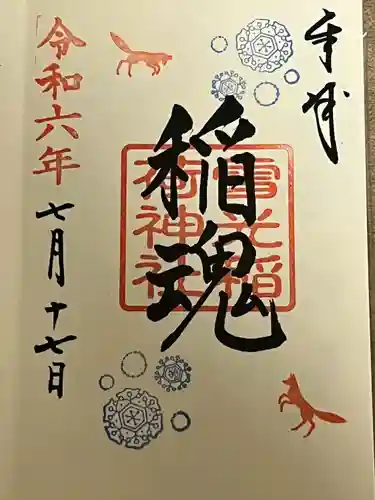 奉拝
稲魂
雪光稲荷神社
令和六年
七月十七日